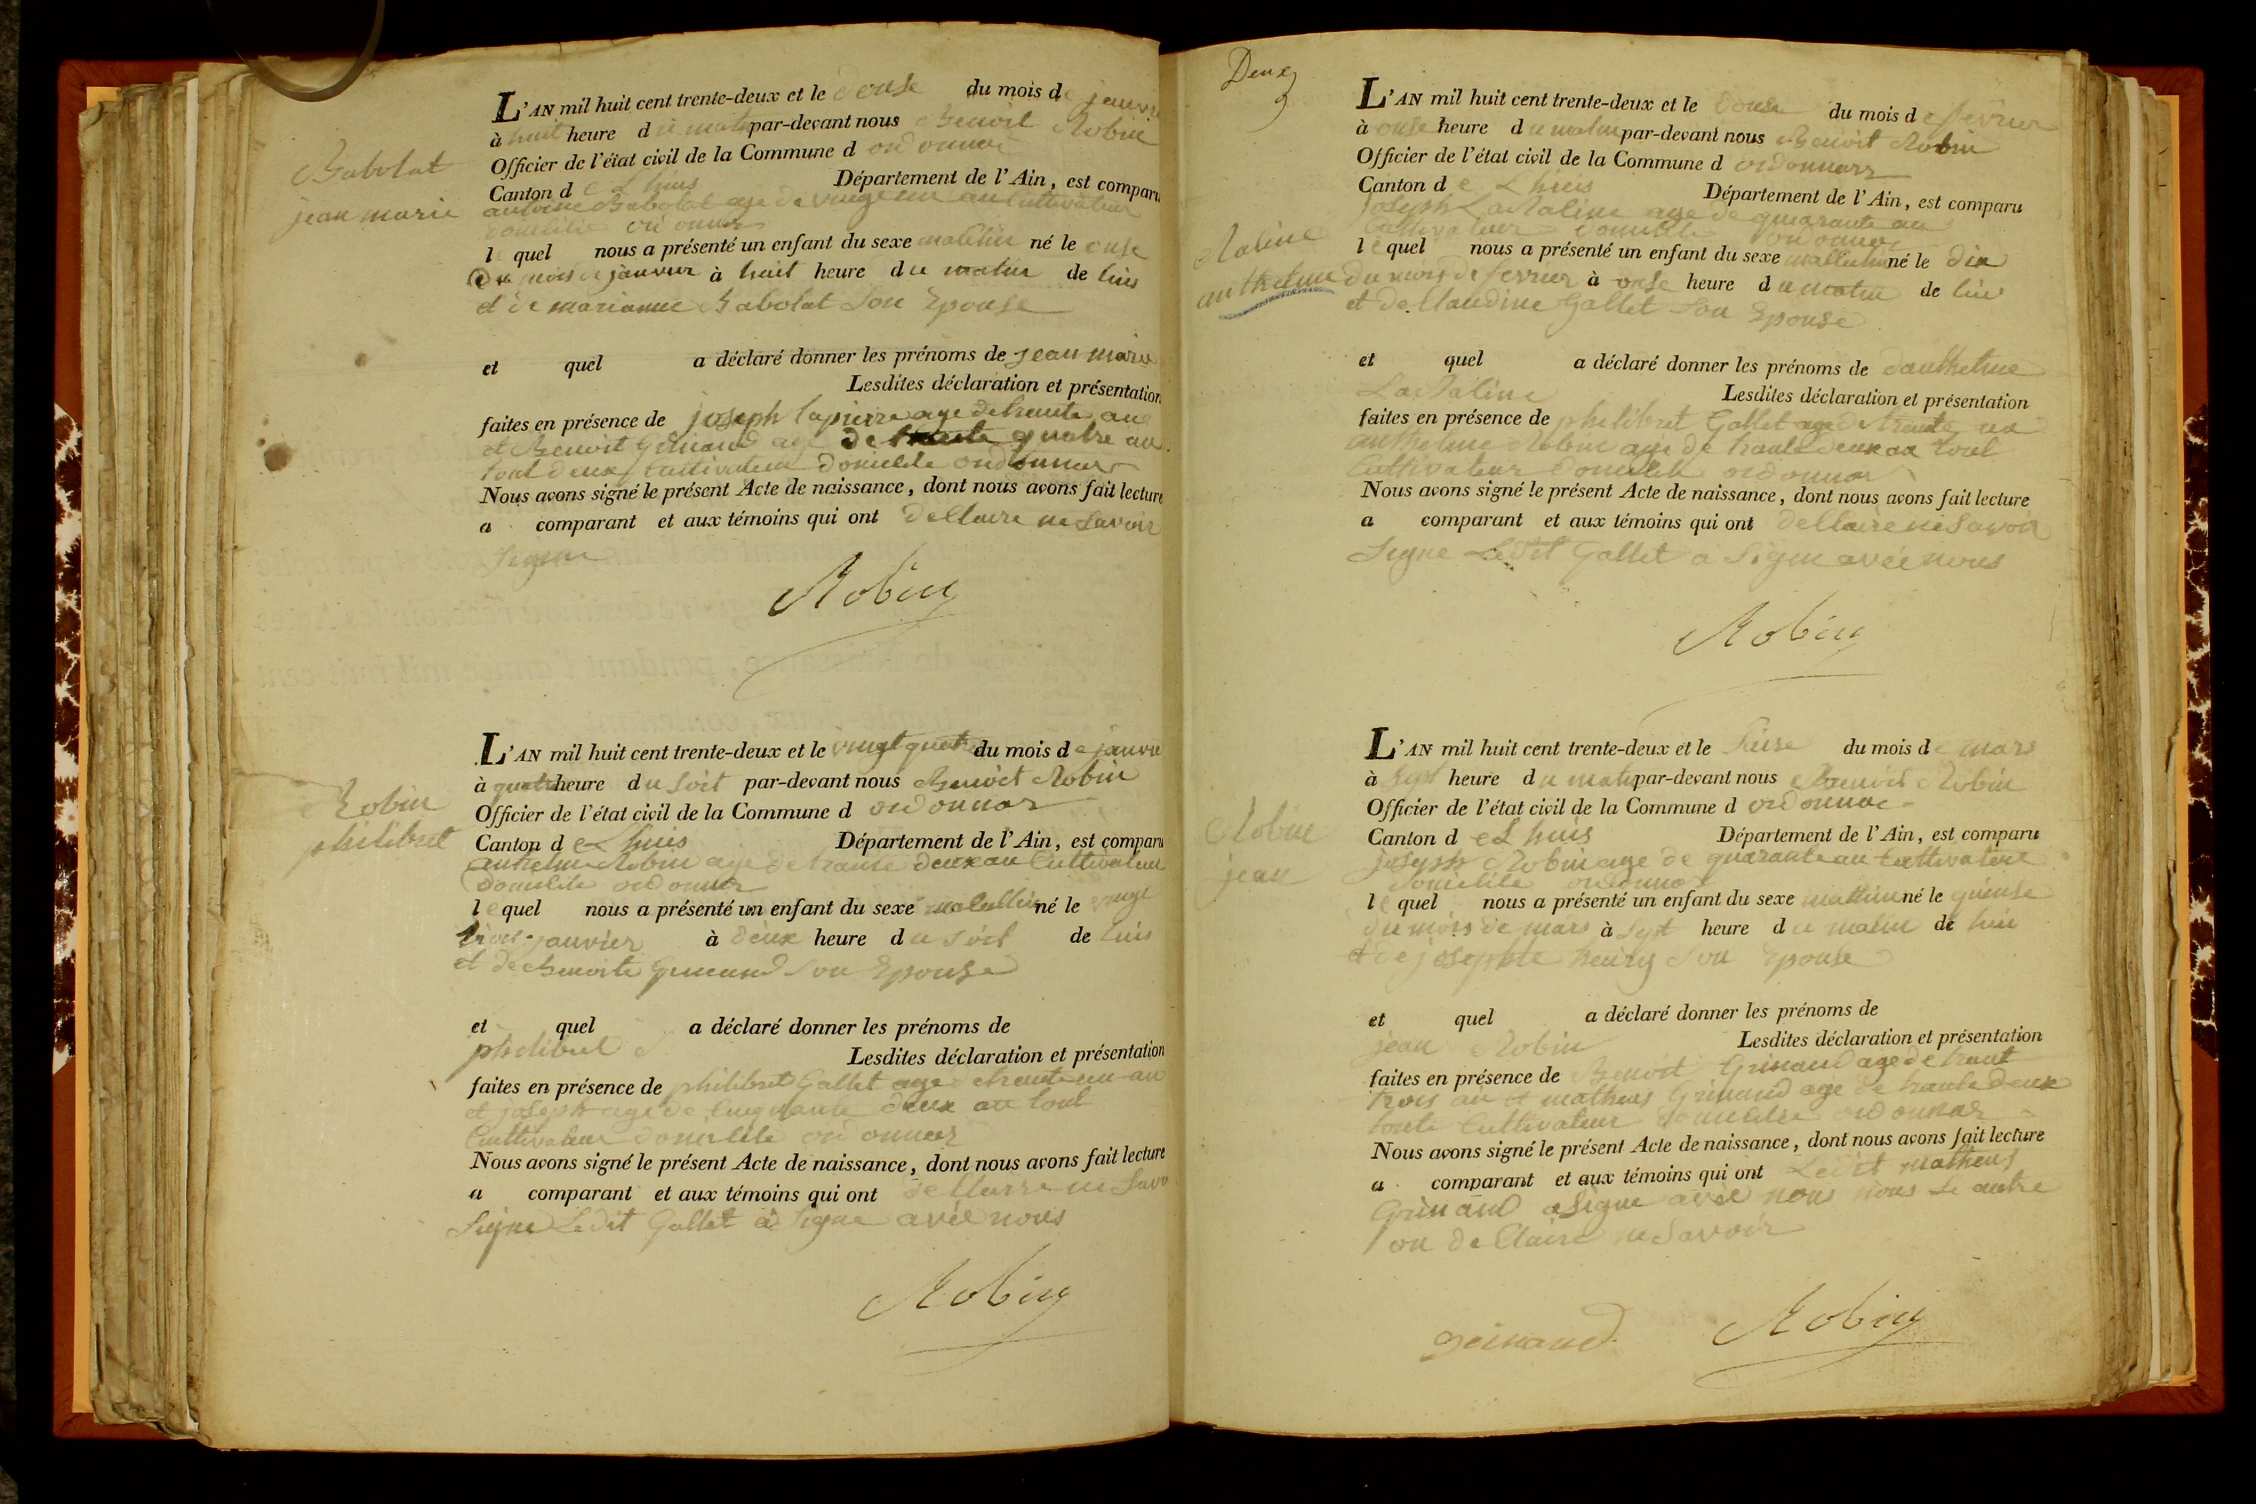 Babolat
jean marie
L'AN mil huit cent trente-deux et le douse du mois de janvie
à huit heure du matin par-devant nous Benoit Robin
Officier de l'état civil de la Commune d ordonnar
Canton de Lhuis Département de l'Ain, est comparu
antoine Babolat age de vingt un an Cultivateur
domicilié ordonnar
lequel nous a présenté un enfant du sexe né le onse
du mois de janvier à huit heure du matin de luis
et de marianne Babolat Son Epouse
et quel a déclaré donner les prénoms de jean marie
Lesdites déclaration et présentation
faites en présence de joseph lapierre age de trente an
et Benoit Grinand age de trente quatre an
tout deux Cultivateur domicilé ordonnar
Nous avons signé le présent Acte de naissance, dont nous avons fait lecture
a comparant et aux témoins qui ont deClaire ne Savoir
Signe
Robin
Robin
philibret
L'AN mil huit cent trente-deux et le vingt quatre du mois de janvie
à quatre heure du soit par-devant nous Benoit Robin
Officier de l'état civil de la Commune d ordonnar
Canton de Lhuis Département de l'Ain, est comparu
anthelme Robin age de trante deux an Cultivateur
domicilé ordonnar
lequel nous a présenté un enfant du sexe né le vingt
trois janvier à deux heure du soit de luis
et de Benoite Grinand Son Epouse
et quel a déclaré donner les prénoms de
philibret
Lesdites déclaration et présentation
faites en présence de philibret Gallet age de trente un an
et joseph age de Cinquante deux an tout
Cultivateur domicilé ordonnar
Nous avons signé le présent Acte de naissance, dont nous avons fait lecture
a comparant et aux témoins qui ont deClaire ne Savo
Signe Ledit Gallet a Signe avée nous
Robin
Deux
Raline
anthelme
L'AN mil huit cent trente-deux et le douse du mois de fevrier
à onse heure du matin par-devant nous Benoit Robin
Officier de l'état civil de la Commune d ordonnar
Canton de Lhuis Département de l'Ain, est comparu
joseph LaRaline age de quarante an
Cultivateur domicilé ordonnar
lequel nous a présenté un enfant du sexe né le dix
du mois de fevrier à onse heure du matin de lui
et de Claudine Gallet Son Epouse
et quel a déclaré donner les prénoms de danthelme
LaRaline Lesdites déclaration et présentation
faites en présence de philibret Gallet age de trante un
anthelme Robin age de trante deux an tout
Cultivateur domicilé ordonnar
Nous avons signé le présent Acte de naissance, dont nous avons fait lecture
a comparant et aux témoins qui ont deClaire ne Savoir
Signe Ledit Gallet a Signe avée nous
Robin
Robin
jean
L'AN mil huit cent trente-deux et le Seise du mois de mars
à Sept heure du matin par-devant nous Benoit Robin
Officier de l'état civil de la Commune d ordonnar
Canton de Lhuis Département de l'Ain, est comparu
joseph Robin age de quarante an Cultivateur
domicilé ordonnar
lequel nous a présenté un enfant du sexe né le quinse
du mois de mars à Sept heure du matin de lui
et de josephte henry Son Epouse
et quel a déclaré donner les prénoms de
jean Robin Lesdites déclaration et présentation
faites en présence de Benoit Grinand age de trant
trois an et matheus Grinand age de trante deux
toute Cultivateur domicilé ordonnar
Nous avons signé le présent Acte de naissance, dont nous avons fait lecture
a comparant et aux témoins qui ont Ledit matheus
Grinand a Signe avée nous nous Le autre
on de Claire ne Savoir
Grinand
Robin